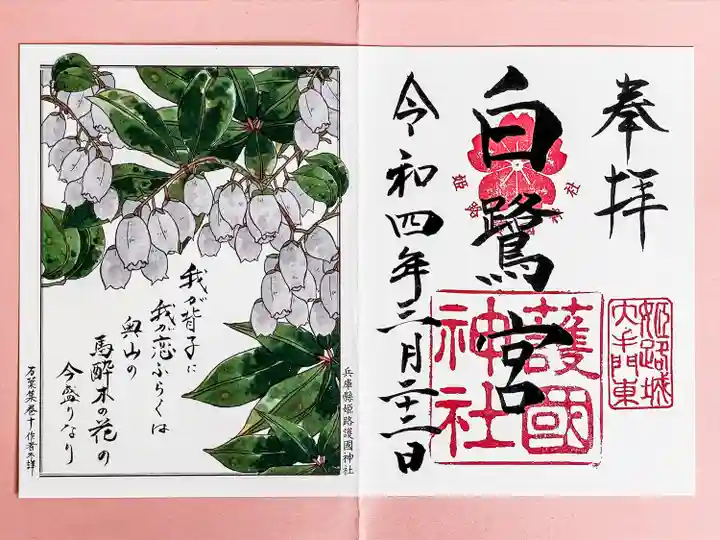 奉拝
姫路城
大手門東
白鷺宮
護國
神社
令和四年三月二十三日
我が背子に
我が恋ふらくは
奥山の
馬酔木の花の
今盛りなり
万葉集巻十 作者不詳
兵庫縣姫路護國神社